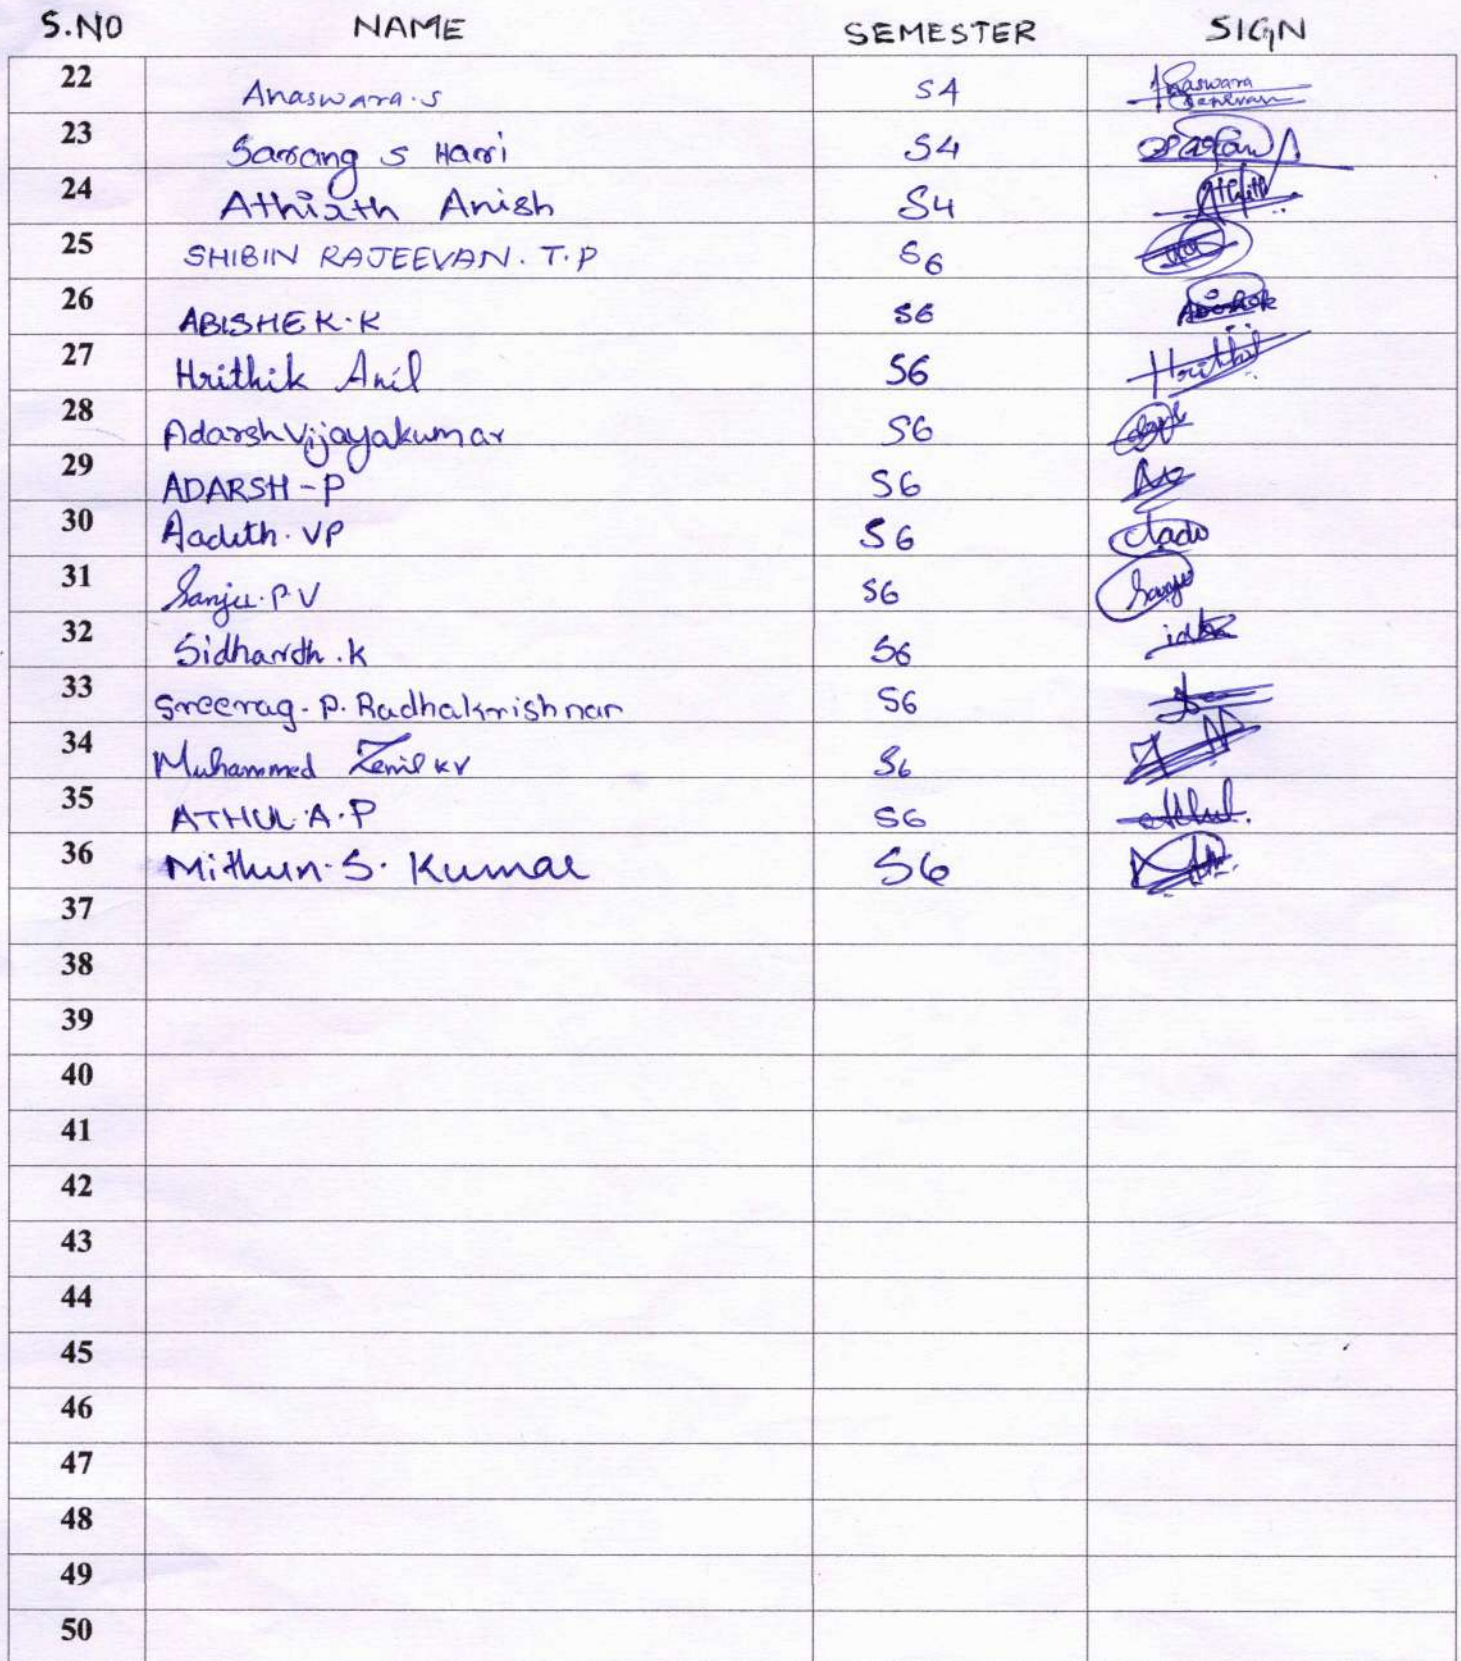 S.NO NAME SEMESTER SIGN
22 Anaswara.S S4 Anaswara
23 Sarang S Hari S4
24 Athirth Anish S4
25 SHIBIN RAJEEVAN. T.P S6
26 ABISHEK.K S6
27 Hrithik Anil S6 Hrithik
28 Adarsh Vijayakumar S6
29 ADARSH-P S6
30 Aadith. VP S6
31 Sanju.P V S6 Sanju
32 Sidharth.K S6
33 Sreerag.P.Radhakrishnan S6
34 Muhammed Zemil KV S6
35 ATHUL.A.P S6 Athul.
36 Mithun.S.Kumar S6
37
38
39
40
41
42
43
44
45
46
47
48
49
50